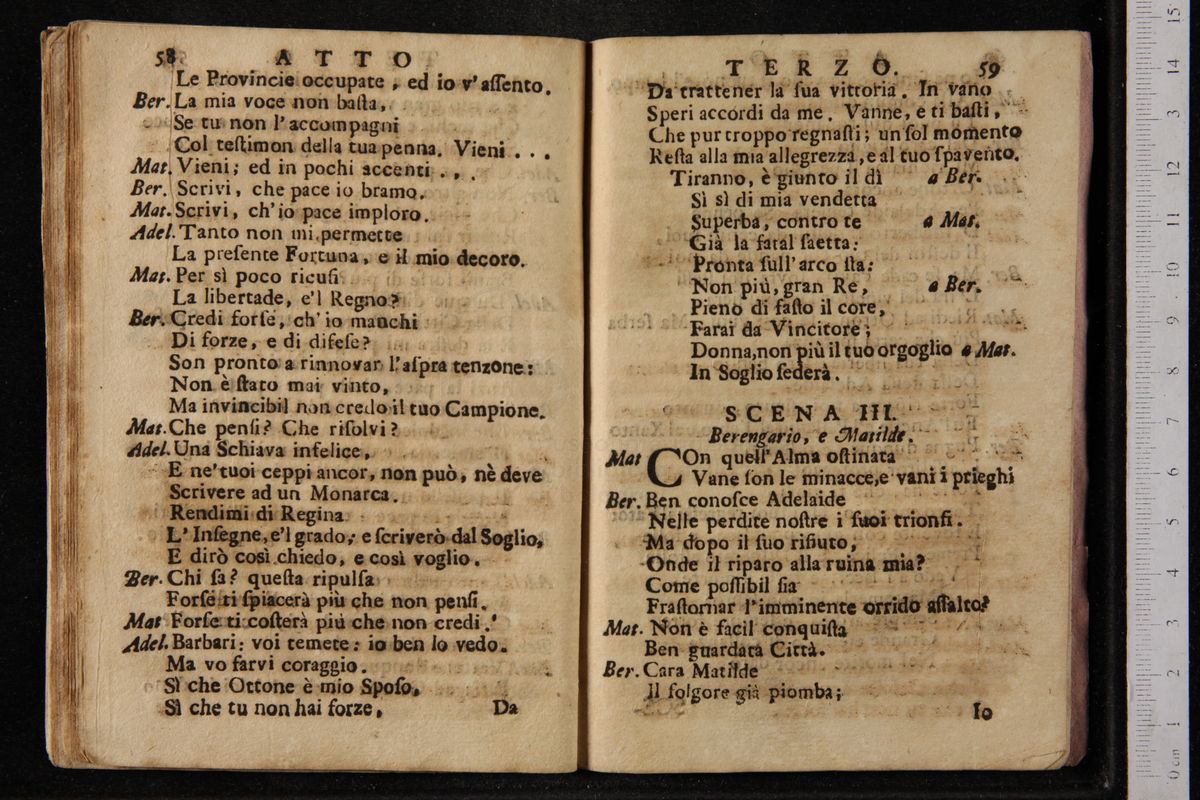 58 ATTO
Le Provincie occupate, ed io v'aſſento.
Ber. La mia voce non baſta,
Se tu non l'accompagni
Col teſtimon della tua penna. Vieni . . .
Mat. Vieni; ed in pochi accenti . . .
Ber. Scrivi, che pace io bramo.
Mat. Scrivi, ch'io pace imploro.
Adel. Tanto non mi permette
La preſente Fortuna, e il mio decoro.
Mat. Per sì poco ricuſi
La libertade, e'l Regno?
Ber. Credi forſe, ch'io manchi
Di forze, e di difeſe?
Son pronto a rinnovar l'aſpra tenzone:
Non è ſtato mai vinto,
Ma invincibil non credo il tuo Campione.
Mat. Che penſi? Che riſolvi?
Adel. Una Schiava infelice,
E ne' tuoi ceppi ancor, non può, nè deve
Scrivere ad un Monarca.
Rendimi di Regina
L'Inſegne, e'l grado; e ſcriverò dal Soglio,
E dirò così chiedo, e così voglio.
Ber. Chi ſa? queſta ripulſa
Forſe ti ſpiacerà più che non penſi.
Mat Forſe ti coſterà più che non credi.
Adel. Barbari: voi temete: io ben lo vedo.
Ma vo farvi coraggio.
Sì che Ottone è mio Spoſo,
Sì che tu non hai forze,
Da
TERZO. 59
Da trattener la ſua vittoria. In vano
Speri accordi da me. Vanne, e ti baſti,
Che pur troppo regnaſti; un ſol momento
Reſta alla mia allegrezza, e al tuo ſpavento.
Tiranno, è giunto il dì a Ber.
Sì sì di mia vendetta
Superba, contro te a Mat.
Già la fatal ſaetta:
Pronta ſull'arco ſta:
Non più, gran Re, a Ber.
Pieno di faſto il core,
Farai da Vincitore;
Donna, non più il tuo orgoglio a Mat.
In Soglio ſederà.
SCENA III.
Berengario, e Matilde.
Mat COn quell'Alma oſtinata
Vane ſon le minacce, e vani i prieghi
Ber. Ben conoſce Adelaide
Nelle perdite noſtre i ſuoi trionfi.
Ma dopo il ſuo rifiuto,
Onde il riparo alla ruina mia?
Come poſſibil ſia
Fraſtornar l'imminente orrido aſſalto?
Mat. Non è facil conquiſta
Ben guardata Città.
Ber. Cara Matilde
Il folgore già piomba;
Io